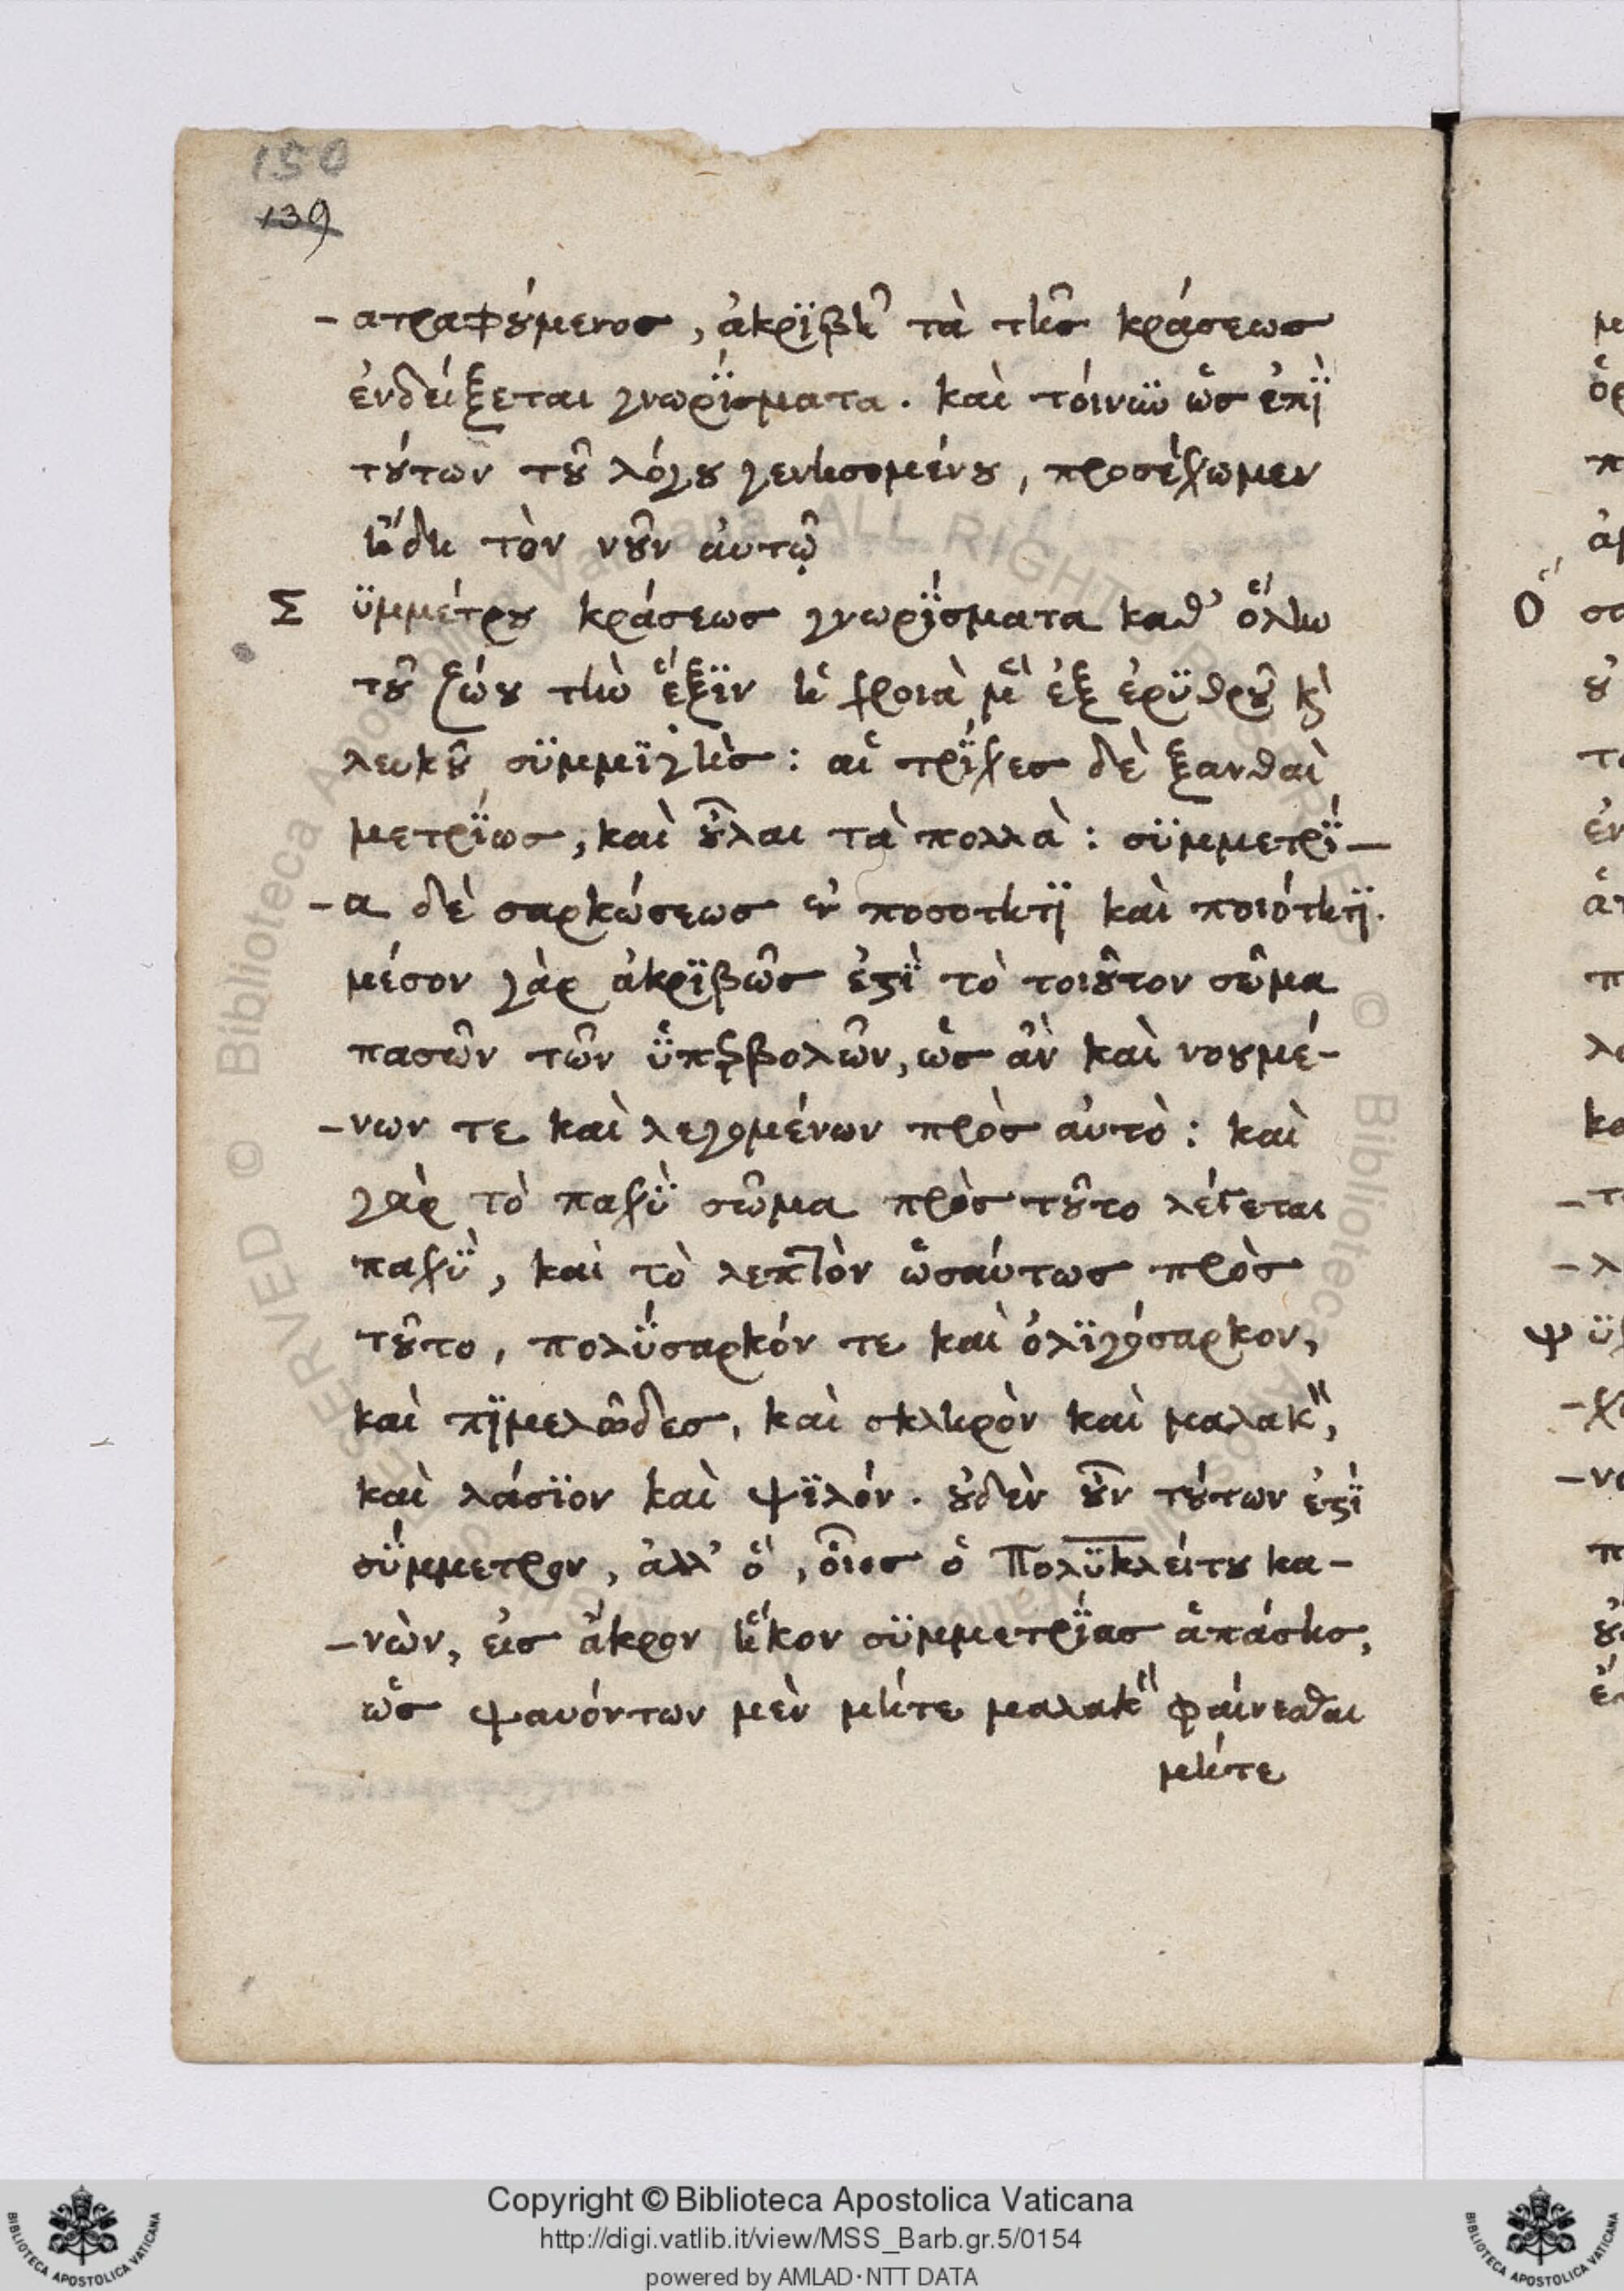 150
139
-ατραφούμενος, ἀκριβῆ τὰ τῆς κράσεως
ἐνδείξεται γνωρίσματα. καὶ τοίνυν ὡς ἐπὶ
τούτων τοῦ λόγου γενησομένου, προσέχωμεν
ἤδη τὸν νοῦν αὐτῷ
Συμμέτρου κράσεως γνωρίσματα καθ' ὅλην
τοῦ ζώου τὴν ἕξιν ἡ χροιὰ μὲ ἐξ ἐρυθροῦ κὶ
λευκοῦ συμμιγὴς: αἱ τρίχες δὲ ξανθαὶ
μετρίως, καὶ οὖλαι τὰ πολλὰ: συμμετρί-
-α δὲ σαρκώσεως ἐν ποσοτητι καὶ ποιότητι.
μέσον γὰρ ἀκριβῶς ἐστὶ τὸ τοιοῦτον σῶμα
πασῶν τῶν ὑπερβολῶν, ὡς ἂν καὶ νοουμέ-
-νων τε καὶ λεγομένων πρὸς αὐτὸ: καὶ
γὰρ τὸ παχὺ σῶμα πρὸς τοῦτο λέγεται
παχὺ, καὶ τὸ λεπτὸν ὡσαύτως πρὸς
τοῦτο, πολύσαρκόν τε καὶ ὀλιγόσαρκον,
καὶ πιμελῶδες, καὶ σκληρὸν καὶ μαλακὸν,
καὶ λάσιον καὶ ψιλόν. οὐδὲν οὖν τούτων ἐστί
σύμμετρον, ἀλλ' ὅ, οἷος ὁ Πολυκλείτου κα-
-νὼν, εἰς ἄκρον ἧκον συμμετρίας ἁπάσης,
ὡς ψαυόντων μὲν μήτε μαλακὸν φαίνεσθαι
μήτε
Copyright © Biblioteca Apostolica Vaticana
http://digi.vatlib.it/view/MSS_Barb.gr.5/0154
powered by AMLAD·NTT DATA